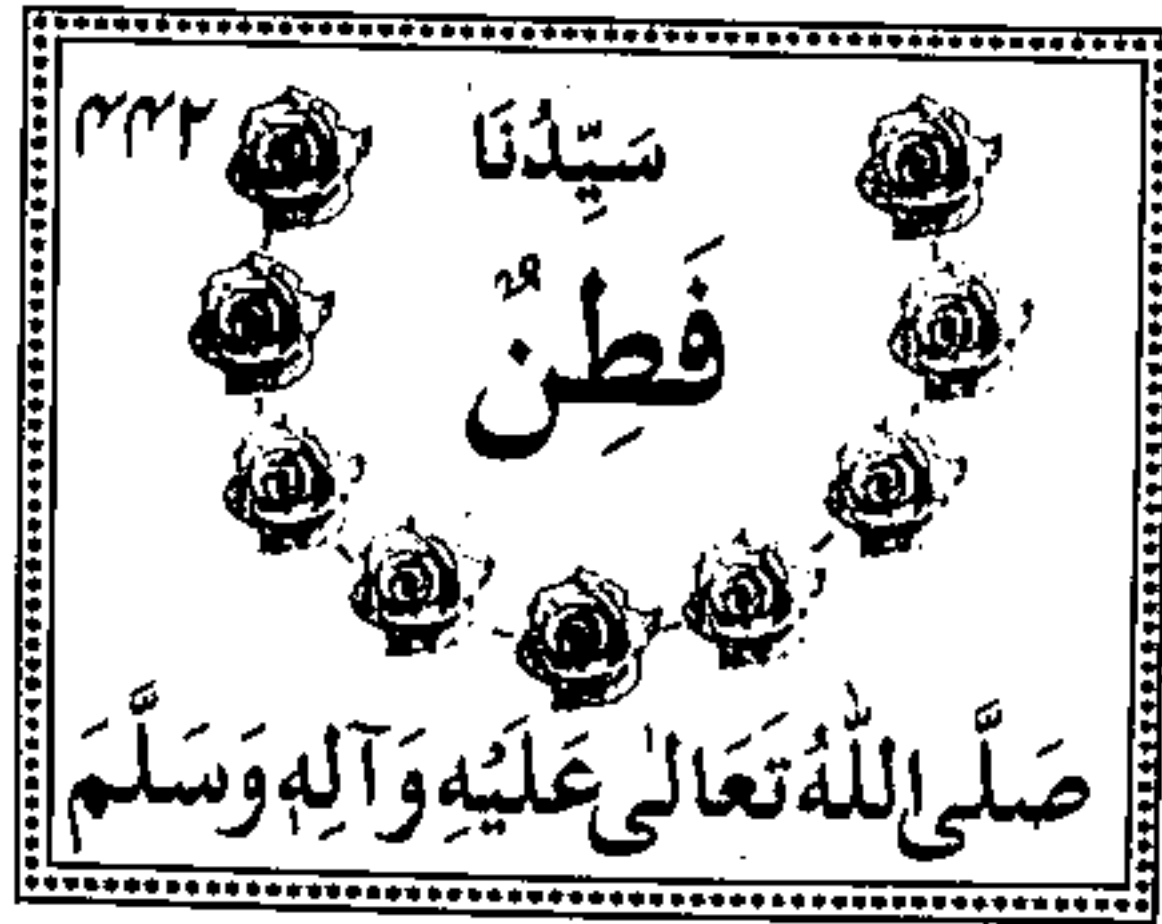 سَيِّدُنَا
فَطِنٌ
صَلَّى اللّٰهُ تَعَالٰى عَلَيْهِ وَآلِهٖ وَسَلَّمَ